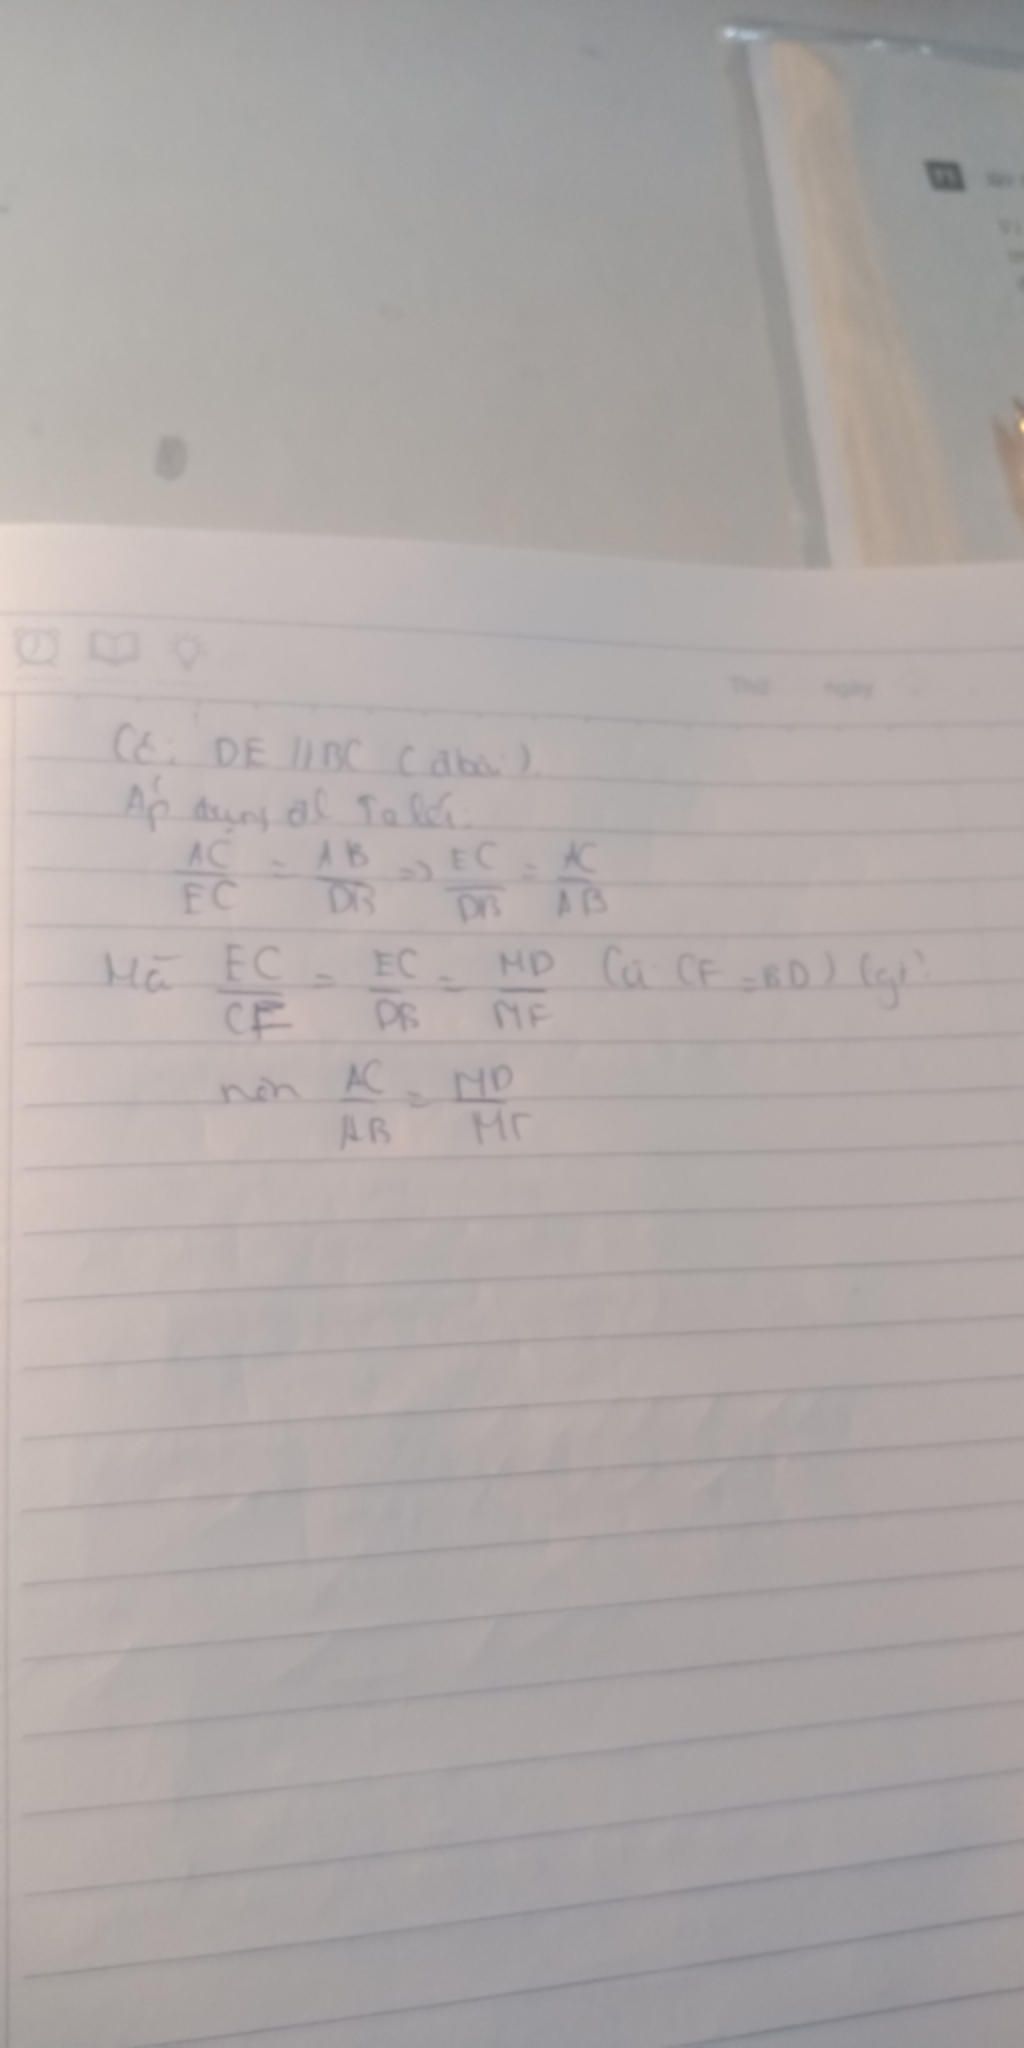 Thứ ngày
Có: DE // BC (đbài).
Áp dụng đl Talét:
AC/EC = AB/DB => EC/DB = AC/AB
Mà EC/CF = EC/DB = MD/MF (vì CF = BD) (gt)
nên AC/AB = MD/MF